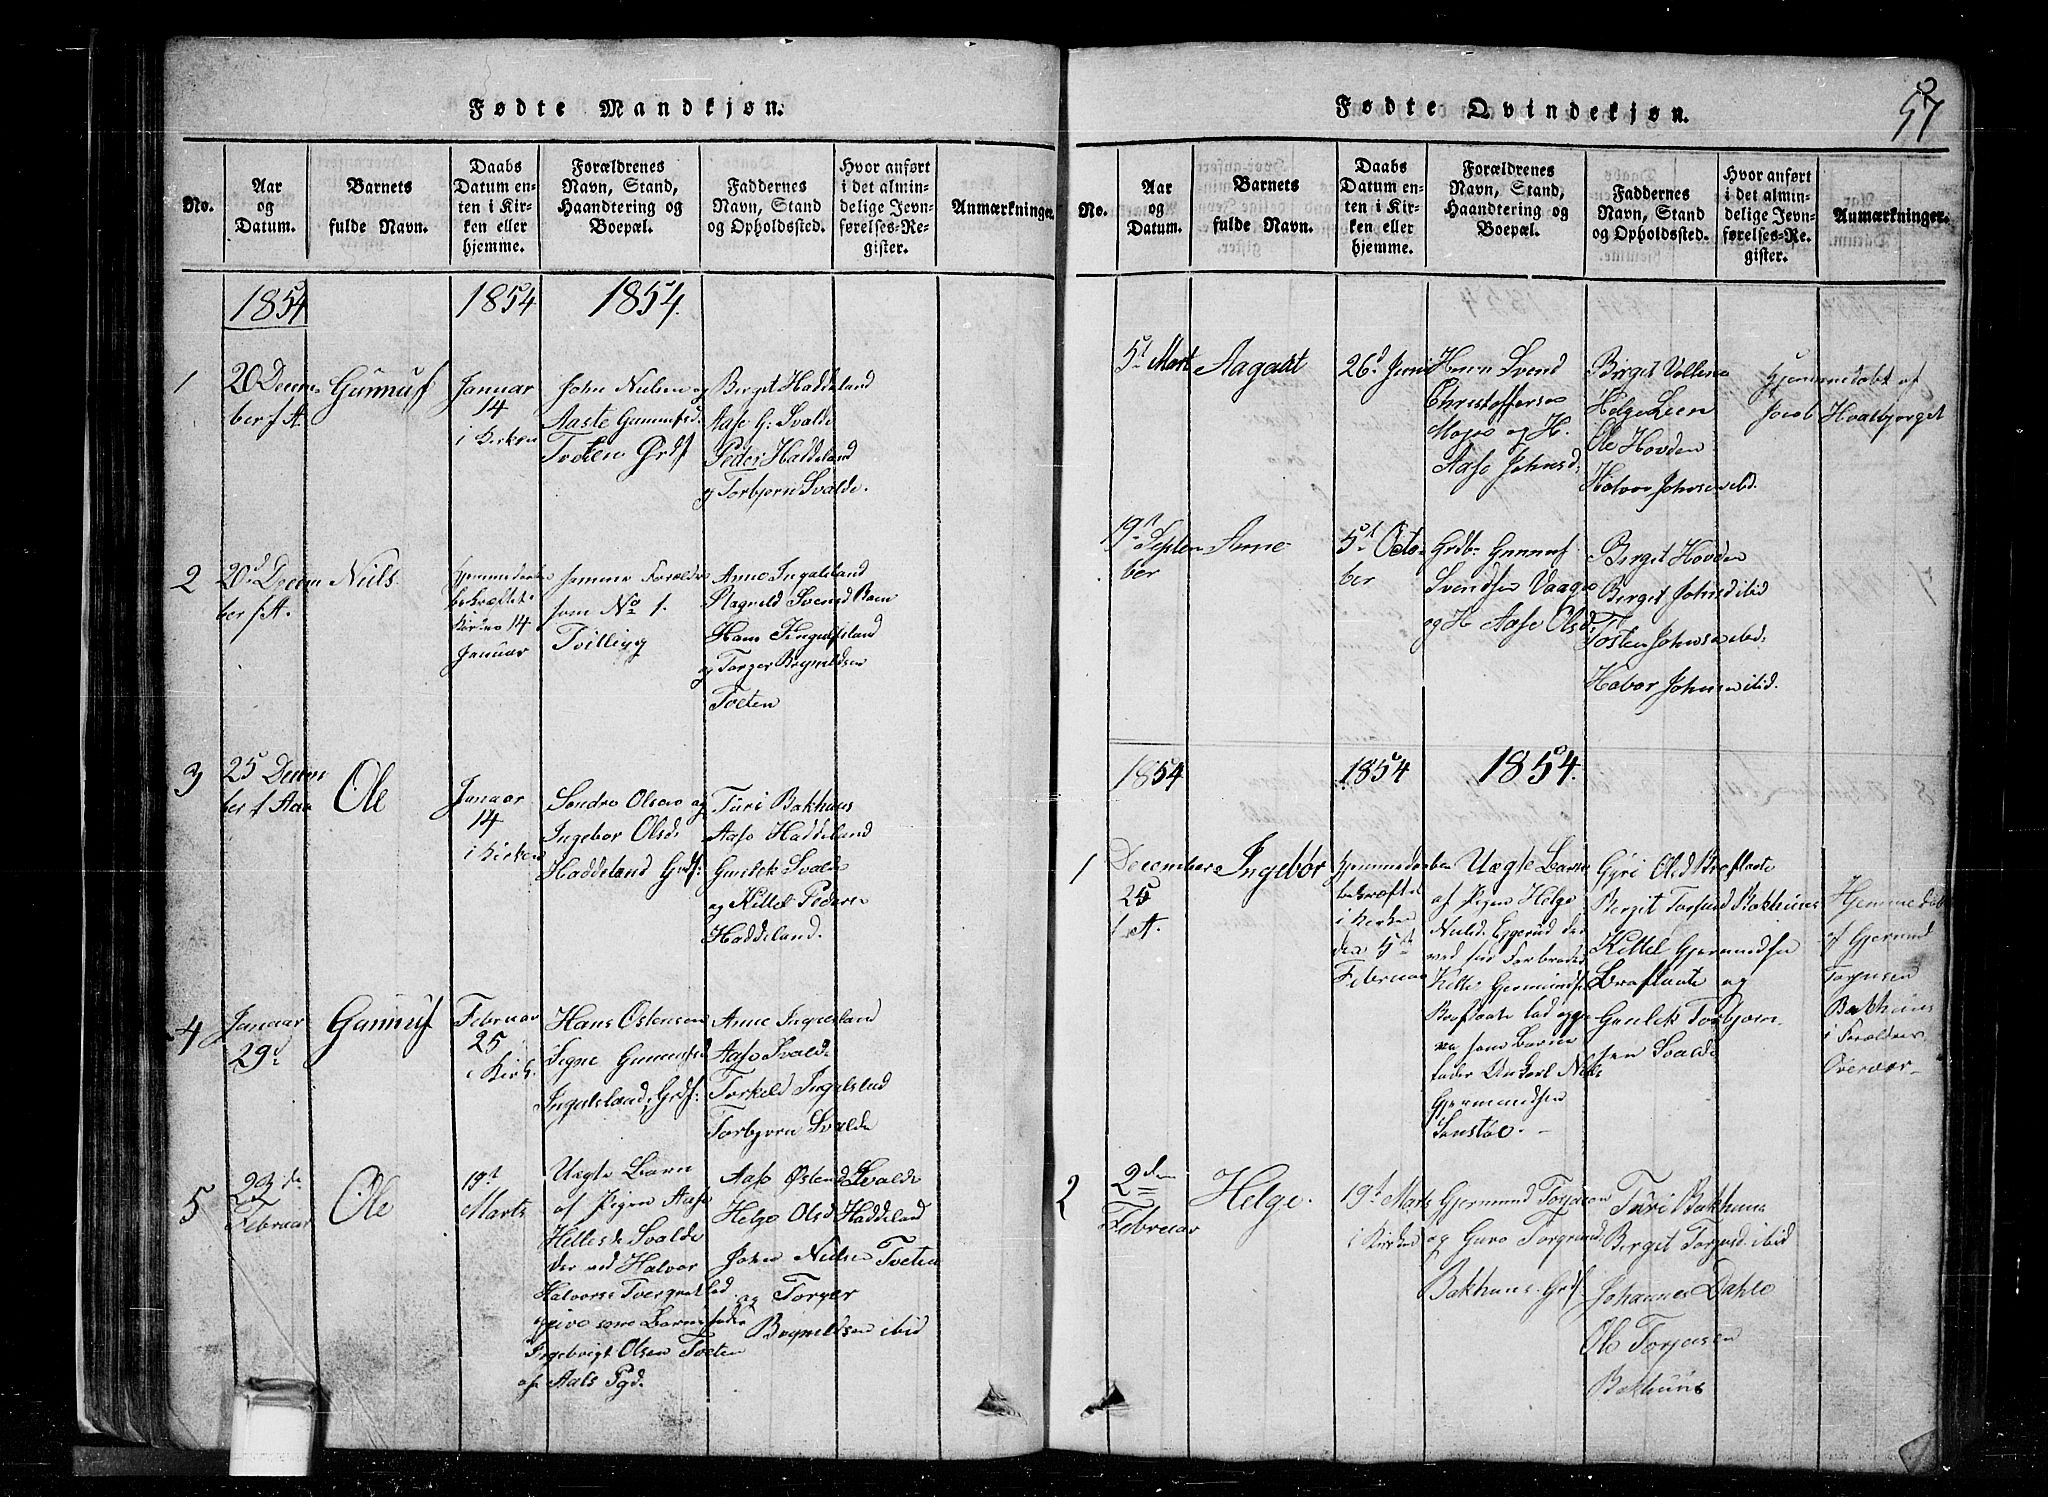 Fødte Mandkjøn.
No.
Aar
og
Datum.
Barnets
fulde Navn.
Daabs
Datum en-
ten i Kir-
ken eller
hjemme.
Forældrenes
Navn, Stand,
Haandtering og
Boepæl.
Faddernes
Navn, Stand
og Opholdssted.
Hvor anført
i det almin-
delige Jevn-
førelses-Re-
gister.
Anmærkninger.
1854
1854
1854.
1
20 Decem-
ber f. A.
Gunnuf
Januar
14
i Kirken
John Nielsen og
Aaste Gunnufsd.
Tveten Grdf
Birgit Haddeland
Aase G. Svalde
Peder Haddeland
og Torbjørn Svalde.
2
20d Decem
ber f. A.
Niels.
Hjemmedøbt
bekræftet
Kirken 14
Januar
samme Forældre
som No 1.
Tvilling
Anne Ingolsland
Ragnild Svensd
Hans Ingulfsland
og Torger Bryneldsen
Tveten
3
25 Decem
ber f Aar
Ole
Januar
14
i Kirken
Sondre Olsen og
Ingebor Olsd.
Haddeland Grdf.
Turi Bakhuus
Aase Haddeland
Gunlek Svalde
og Kittel Pedersen
Haddeland.
4
Januar
29d
Gunnuf
Februar
25
i Kirk.
Hans Ostensen
Signe Gunnufsd
Ingolsland, Grdf.
Anne Ingolsland
Aase Svalde
Torkeld Ingolsland
Torbjørn Svalde
5
23de
Februar
Ole
19t
Marts
Uægte Barn
af Pigen Aase
Hellesd. Svalde
der ved Halvor
Halvorsen
opgive som Barnefader
Ingebrigt Olsen Tveten
af Aals Pgd.
Aase Østensd Svalde
Helge Olsd Haddeland
John Nielsen Tveten
og Torger
Bryneldsen ibid
Fødte Qvindekjøn.
57
No.
Aar
og
Datum.
Barnets
fulde Navn.
Daabs
Datum en-
ten i Kir-
ken eller
hjemme.
Forældrenes
Navn, Stand,
Haandtering og
Boepæl.
Faddernes
Navn, Stand
og Opholdssted.
Hvor anført
i det almin-
delige Jevn-
førelses-Re-
gister.
Anmærkninger.
5t Mart
Aagaat
26d Juni
Svend
Christoffersen
Mogen og H.
Aase Johnsd.
Birget
Helge Leen
Ole Hovden
Halvor Johnsen ibd.
Hjemmedøbt af
Jacob Hvalbjorget
19t Septem
ber
Anne
5t Octo
ber
Grdbr Gunnuf
Svendsen Vaagen
og H Aase Olsd.
Birget Hovden
Birget Johnsd ibid
Tosten Johnsen ibid.
Halvor Johnsen ibid.
1854
1854
1854.
1
December
25
f. A.
Ingebor
Hjemmedøbt
bekræftet
i Kirken
den 5te
Februar
Uægte Barn
af Pigen Helge
Nielsd. Eggerud der
ved sin Forbroder
Kittel Gjermundsen
Brøflaate lod opgi-
ve som Barne
fader Unkarl Niels
Gjermundsen
Sønstøe.
Gyri Olsd Brøflaate
Bergit Torjusd Bakhuus
Kittel Gjermundsen
Brøflaate og
Gunlek Torbjørn-
sen Svalde
Hjemmedøbt
af Gjermund
Torjusen
Bakhuus
i Forældres
Overvær
2
2den
Februar
Helge.
19t Marts
i Kirken
Gjermund Torjusen
og Guro Torgrimsd.
Bakhuus. Grdf.
Turi Bakhuus
Berget Torjusd. ibid
Johannes Dahle
Ole Torjusen
Bakhuus